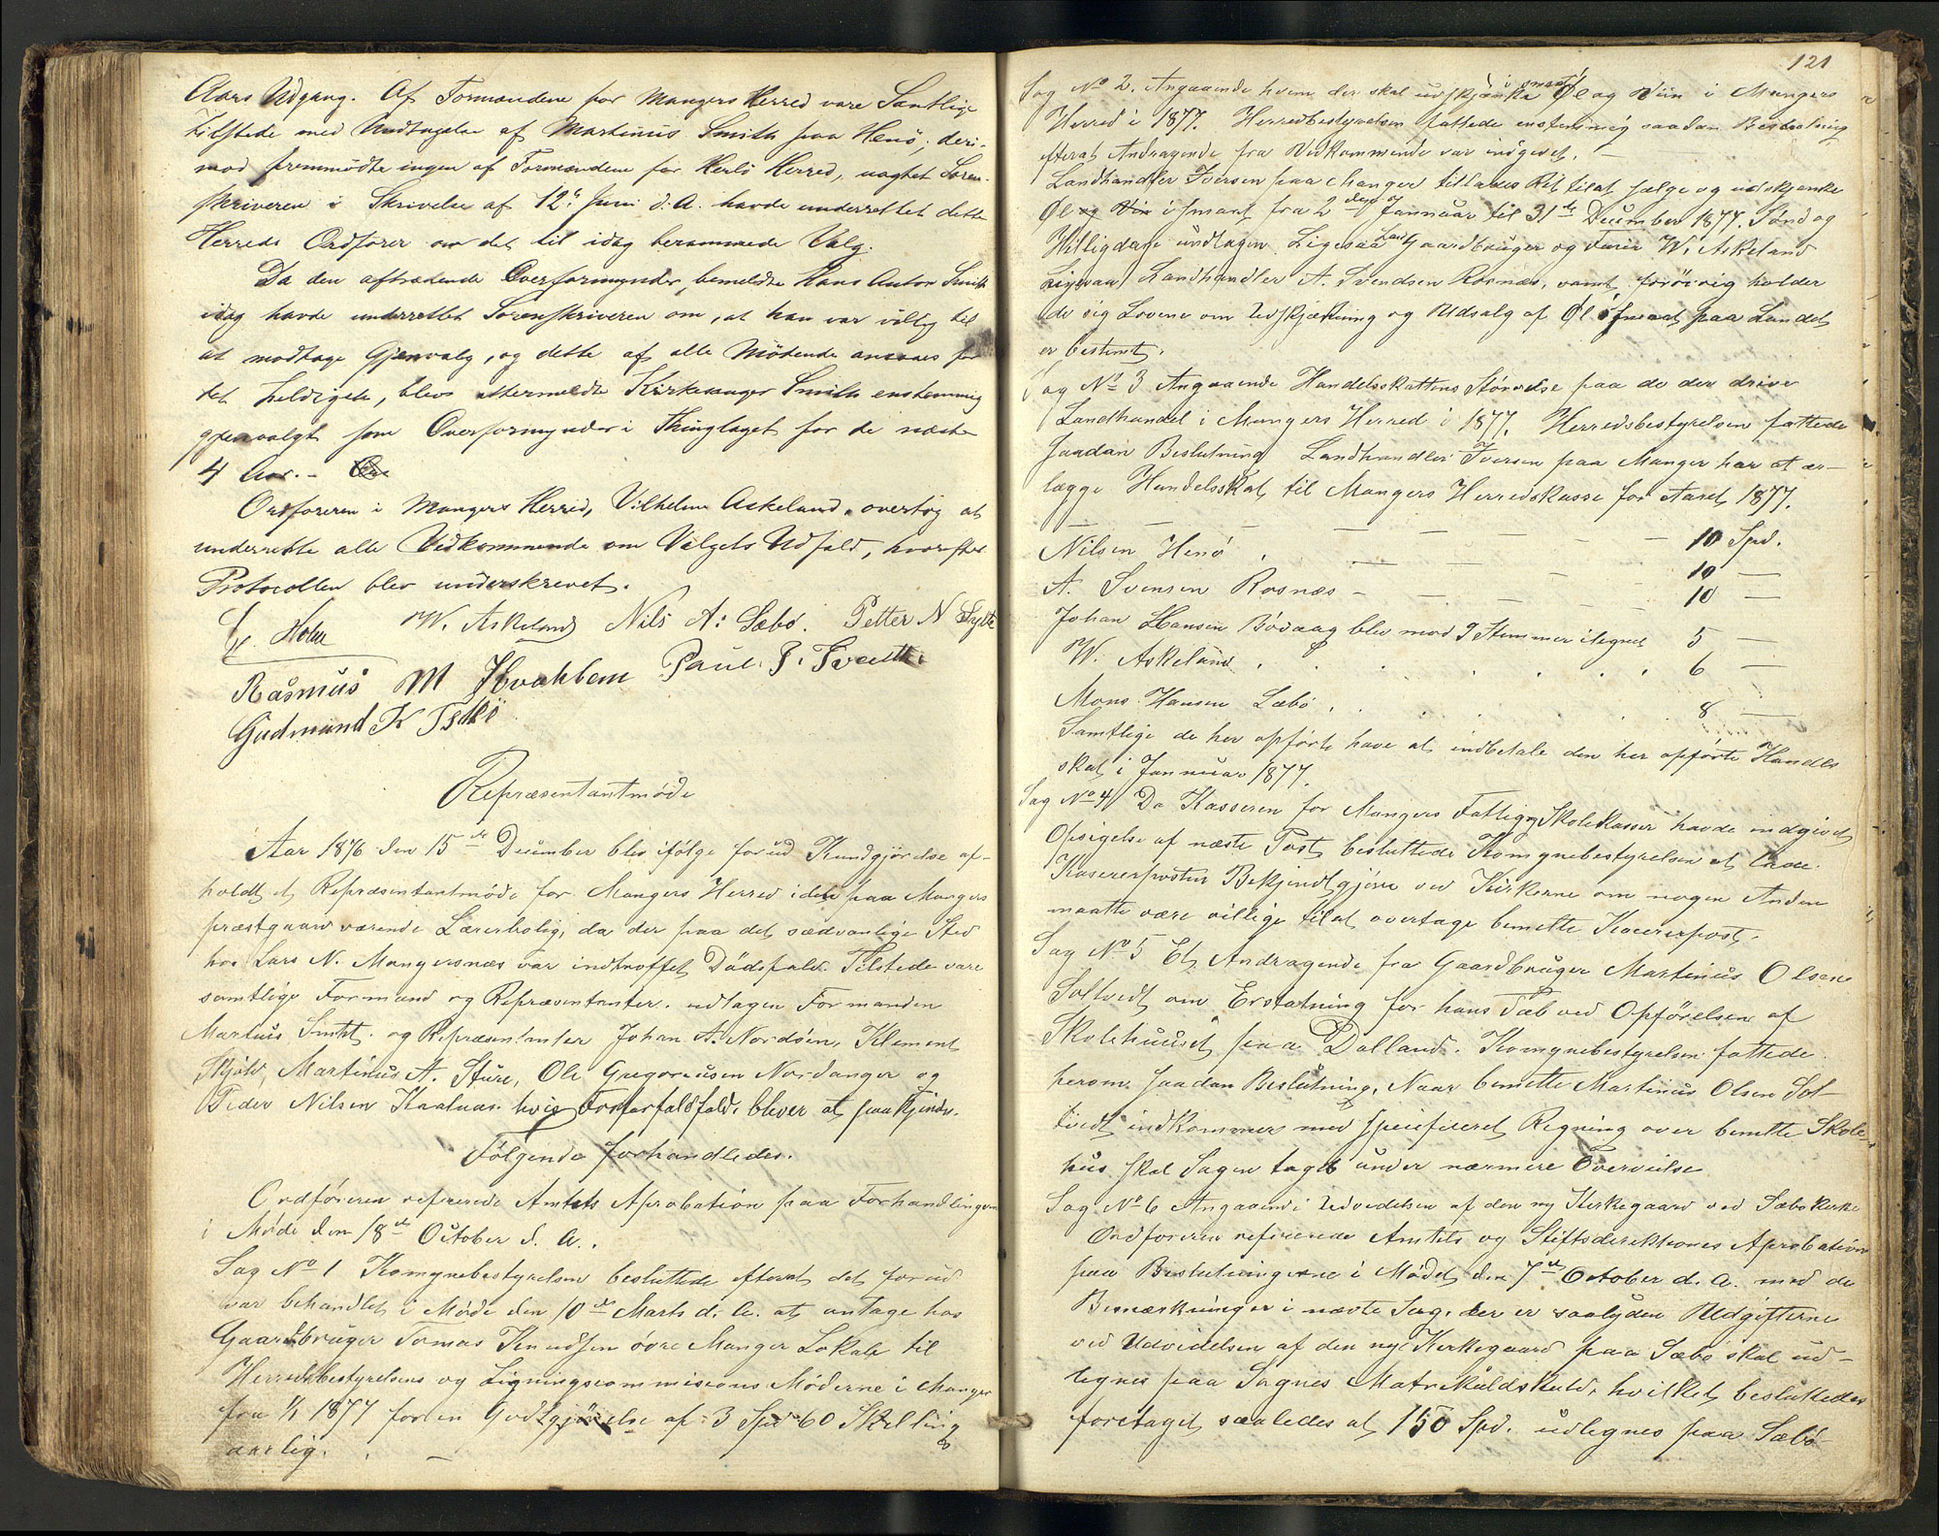 Aars Udgang. Af Formændene for Mangers Herred vare Samtlige
tilstede med Undtagelse af Martinus Smith paa Henö; deri-
mod fremmödte ingen af Formændene for Herlö Herred, uagtet Soren-
skriveren i Skrivelse af 12te Juni d. A. havde underrettet dette
Herreds Ordförer om det til idag berammede Valg.
Da den aftrædende Overformynder, bemeldte Hans Anton Smith
idag havde underrettet Sorenskriveren om, at han var villig til
at modtage Gjenvalg, og dette af alle Mödende ansaaes for
det heldigste, blev ovenmeldte Kirkesanger Smith enstemmig
gjenvalgt som Overformynder i Thinglaget for de næste
4 Aar. -
Ordföreren i Mangers Herred, Vilhelm Askeland, overtog at
underrette alle Vedkommende om Valgets Udfald, hvorefter
Protocollen blev underskrevet.
Holm W. Askeland Nils A: Sæbö. Petter N
Rasmus M Paul P.
Gudmund K
Repræsentantmöde
Aar 1876 den 15de December blev ifölge forud Kundgjörelse af-
holdt et Repræsentantmöde for Mangers Herred i det paa Mangers
præstgaard værende Lærerbolig, da der paa det sædvanlige Sted
hos Lars N. Mangersnæs var indtroffet Dödsfald. Tilstede vare
samtlige Formænd og Repræsentanter. udtagen Formanden
Martius Smitt. og Repræsentanter Johan A. Nordöen, Klement
Skjold, Martinus A. Sture, Ole Gregoriusen Nordanger og
Peder Nilsen Kaalaas. hvis Forfaldsfald. bliver at paakjende.
Fölgende forhandledes.
Ordföreren refererede Amtets Aprobation paa Forhandlingen
i Möde den 18de October d. A..
Sag No 1 Komynebestyrelsen besluttede efterat det forud
var behandlet i Möde den 10de Marts d. A. at antage hos
Gaardbruger Tomas Knudsen övre Manger Lokale til
Herredsbestyrelsens og Ligningscommisions Möderne i Manger
fra 1/1 1877 for en Godtgjörelse af 3 Spd 60 Skilling
aarlig. -
121
Sag No 2. Angaaende hvem der skal udskjænke i smaat Öl og Viin i Mangers
Herred i 1877. Herredbestyrelsen fattede enstemmig saadan Beslutning
efterat Andragende fra Vedkommende var indgivet. -
Landhandler Iversen paa Manger tillades Ret til at sælge og udskjenke
Öl og Vin i smaat fra 2den Januar til 31te December 1877. Sönd og
Helligdage undtagen. Ligesaa Gaardbruger og Furer W. Askeland
Ligesaa Landhandler A. Svendsen Rosnæs, samt forövrig holder
de sig Lovene om Udskjækning og Udsalg af Öl i smaat paa Landet
er bestemt.
Sag No 3 Angaaende Handelsskattens Störrelse paa de der driver
Landhandel i Mangers Herred i 1877. Herredsbestyrelsen fattede
saadan Beslutning Landhandler Iversen paa Manger har at er-
lægge Handelsskat til Mangers Herredskasse for Aaret 1877.
- - - - - - - 10 Spd.
Nilsen Henö . - - - - 10 —
A. Svensen Rosnæs - - - - 10 —
Johan Hansen Bövaag blev mod 9 Stemmer ilegnet 5 —
W. Askeland . . . . . . 6 —
Mons Hansen Sæbö . . . . . 8 —
Samtlige de her opförte have at indbetale den her opförte Handels
skat i Januar 1877.
Sag No 4 Da Kasseren for Mangers Fattig og Skolekasser havde indgivet
Opsigelse af næste Post, besluttede Komynebestyrelsen at lade
Kasererposten Bekjendtgjöre ved Kirkerne om nogen Anden
maatte være villige til at overtage bemelte Kacererpost.
Sag No 5 Et Andragende fra Gaardbruger Martinus Olsen
Soltvedt om Erstatning for hans Tab ved Opförelsen af
Skolehuuset paa Dalland. Komynebestyrelsen fattede
herom saadan Beslutning, Naar bemelte Martinus Olsen Sol-
tvedt indkommer med speicficeret Regning over bemelte Skole-
hus skal Sagen tages under nærmere Overveielse
Sag No 6 Angaaende Udvidelsen af den ny Kirkegaard ved Sæbö Kirke
Ordföreren refererede Amtets og Stiftsdirektionens Aprobation
paa Beslutningerne i Mödet den 7de October d. A. med de
Bemærkninger i næste Sag, der er saalyden Udgifterne
ved Udvidelsen af den nye Kirkegaard paa Sæbö skal ud-
legnes paa Sognes Matrikuldskuld, hvilket besluttedes
foretaget saaledes at 150 Spd. udlegnes paa Sæbö